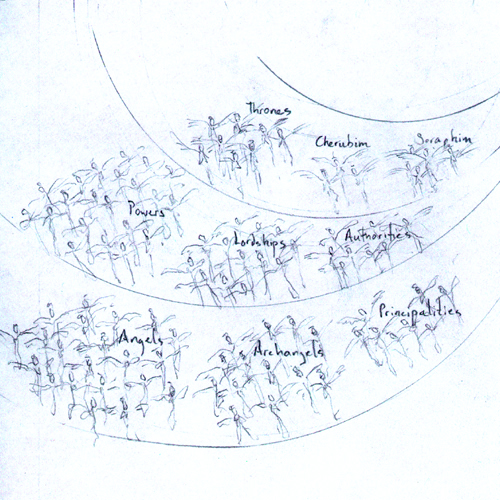 Thrones
Cherubim
Seraphim
Powers
Lordships
Authorities
Angels
Archangels
Principalities